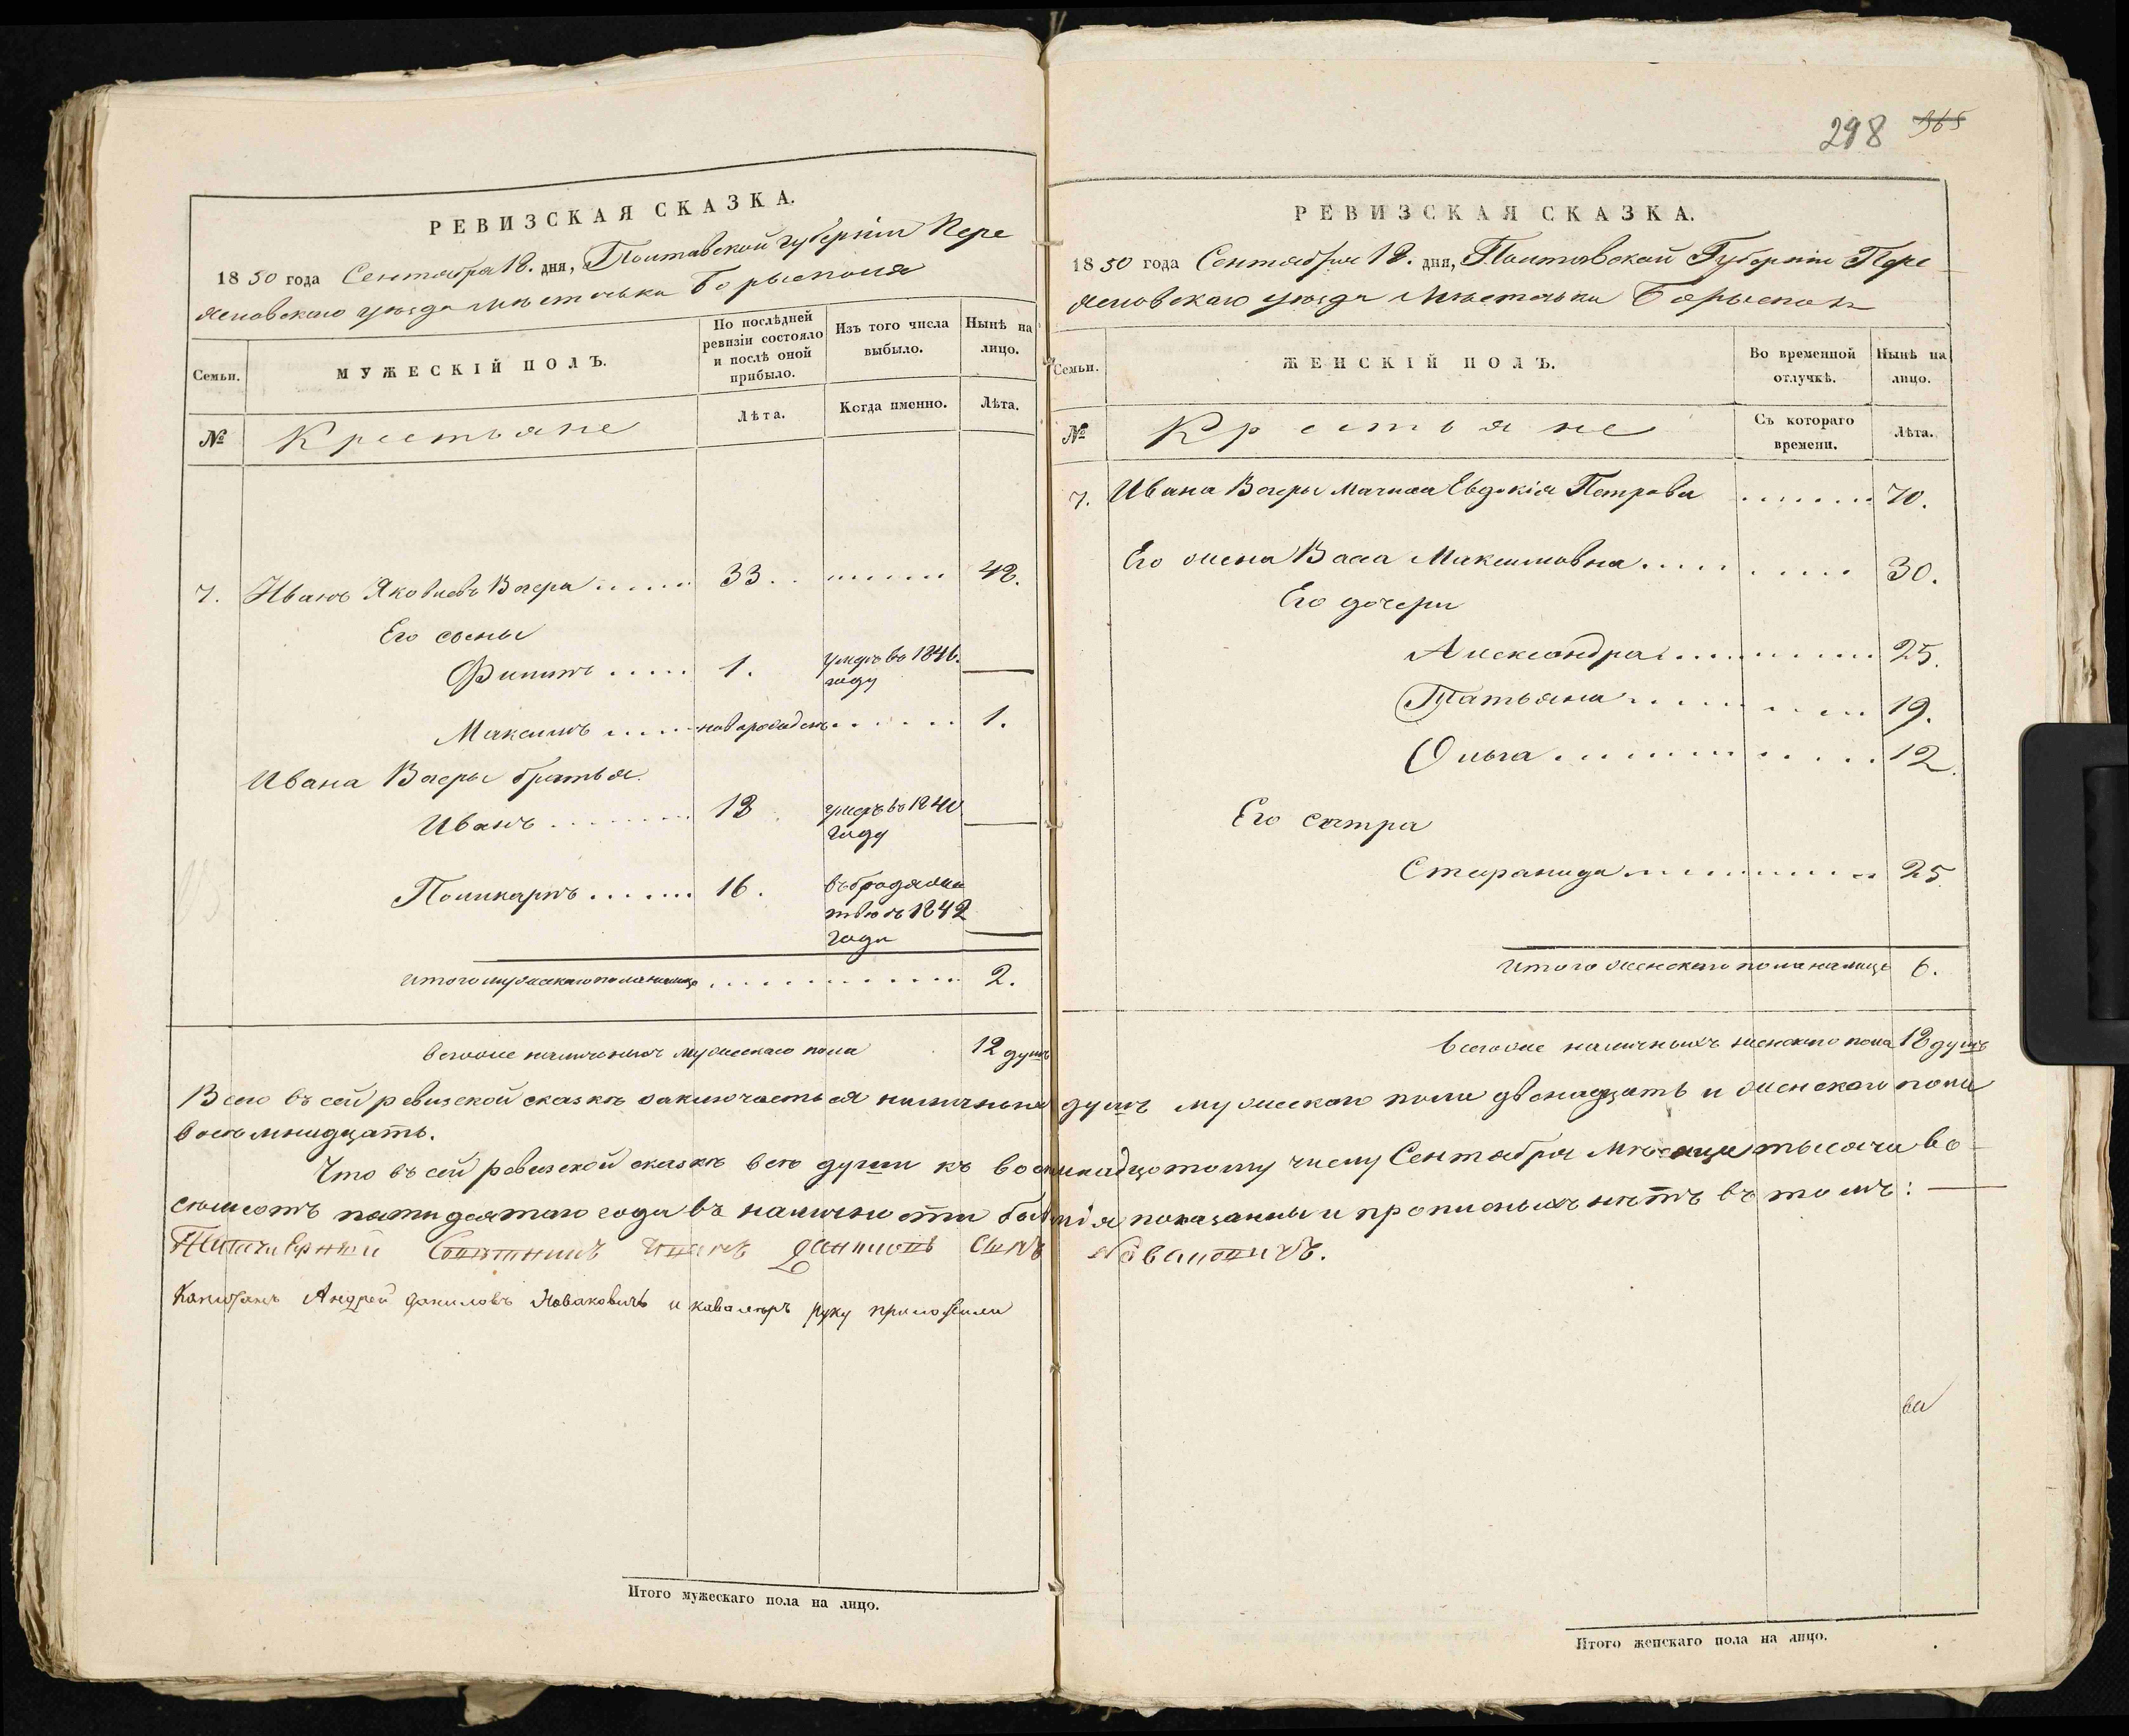 298 365
РЕВИЗСКАЯ СКАЗКА.
1850 года Сентября 18. дня, Полтавской губерніи Пере
яславскаго уезда местечька Борысполя
Семьи.
МУЖЕСКІЙ ПОЛЪ.
По послѣдней ревизіи состояло и послѣ оной прибыло.
Изъ того числа выбыло.
Нынѣ на лицо.
№
Крестьяне
Лѣта.
Когда именно.
Лѣта.
7. Иванъ Яковлевъ Вечера ...... 33. ....... 42.
Его сыны
Филипъ ..... 1. умеръ въ 1846. году —
Максимъ ..... новорожденъ ...... 1.
Ивана Вечеры братья.
Иванъ ........ 18 умеръ въ 1840 году —
Поликарпъ ...... 16. въ бродяжествѣ съ 1842 года —
Итого мужескаго пола налице ........... 2.
всегоже наличныхъ мужескаго пола 12 душъ
РЕВИЗСКАЯ СКАЗКА.
1850 года Сентября 18. дня, Полтавской Губерніи Пере
яславскаго уезда Местечька Борыспол
Семьи.
ЖЕНСКІЙ ПОЛЪ.
Во временной отлучкѣ.
Нынѣ на лицо.
№
Крестьяне
Съ котораго времени.
Лѣта.
7. Ивана Вечеры мачиха Евдокія Петрова ........ 70.
Его жена Васса Максимовна ......... 30.
Его дочери
Александра ............ 25.
Татьяна ......... 19.
Ольга ............ 12.
Его сестра
Стефанида ........... 25.
Итого женскаго пола налице 6.
всегоже наличныхъ женскаго пола 18 душъ
Всего въ сей ревизской сказкѣ заключаеться наличныхъ душъ мужескаго пола двенадцать и женскаго пола
восьмнадцать.
Что въ сей ревизской сказкѣ всѣ души къ восемнадцатому числу Сентября Месяца тысяча во
семьсотъ пятидесятаго года въ наличности бывшія показанны и прописныхъ нѣтъ въ томъ: —
Титулярный Совѣтникъ Данилов Сынъ Новаковичъ.
Капитанъ Андрей Даниловъ Новаковичъ и кавалеръ руку приложили
ва
Итого мужескаго пола на лицо.
Итого женскаго пола на лицо.